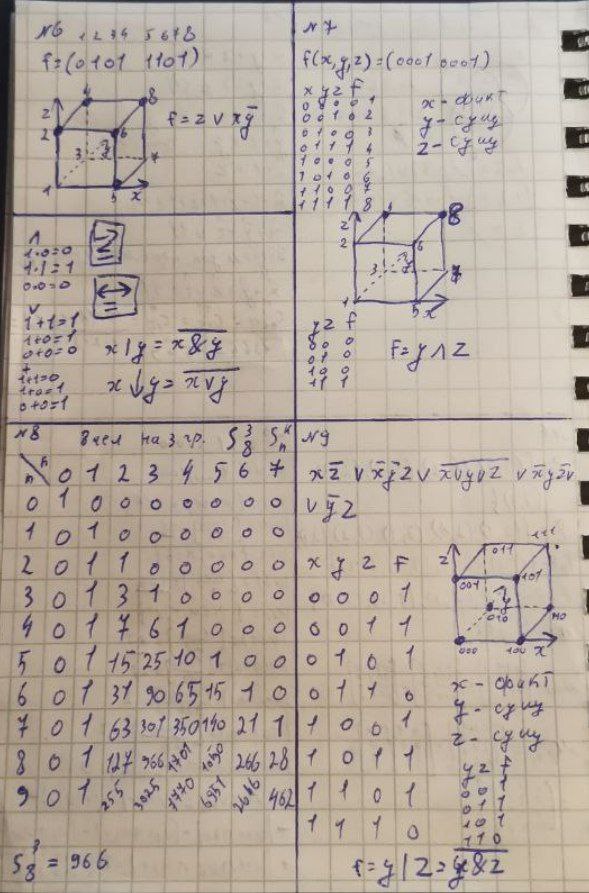 №6 1 2 3 4 5 6 7 8
f=(0101 1101)
z
4
8
2
6
f=z v xȳ
3
y
7
1
5
x
№7
f(x,y,z)=(0001 0001)
x y z f
0 0 0 0 1
0 0 1 0 2
0 1 0 0 3
0 1 1 1 4
1 0 0 0 5
1 0 1 0 6
1 1 0 0 7
1 1 1 1 8
x - фикт
y - сущ
z - сущ
z
8
2
6
3
y
1
5
x
y z f
0 0 0
0 1 0
1 0 0
1 1 1
f=y ∧ z
∧
1·0=0
1·1=1
0·0=0
v
1+1=1
1+0=1
0+0=0
+
1+1=0
1+0=1
0+0=1
→
↔
=
x | y = x&y̅
x ↓ y = x̅v̅y̅
№8 8 чел на 3 гр. S³₈ Sᵏₙ
n k 0 1 2 3 4 5 6 7
0 1 0 0 0 0 0 0 0
1 0 1 0 0 0 0 0 0
2 0 1 1 0 0 0 0 0
3 0 1 3 1 0 0 0 0
4 0 1 7 6 1 0 0 0
5 0 1 15 25 10 1 0 0
6 0 1 31 90 65 15 1 0
7 0 1 63 301 350 140 21 1
8 0 1 127 966 1701 1050 266 28
9 0 1 255 3025 7770 6951 2646 462
S³₈ = 966
№9
xz̄ v x̄ȳz v x̅v̅y̅v̅z̅ v x̄yz̄ v
v ȳz
x y z F
0 0 0 1
0 0 1 1
0 1 0 1
0 1 1 0
1 0 0 1
1 0 1 1
1 1 0 1
1 1 1 0
z
011
111
001
101
y
010
110
000
100
x
x - фикт
y - сущ
z - сущ
y z f
0 0 1
0 1 1
1 0 1
1 1 0
f=y|z=y̅&̅z̅